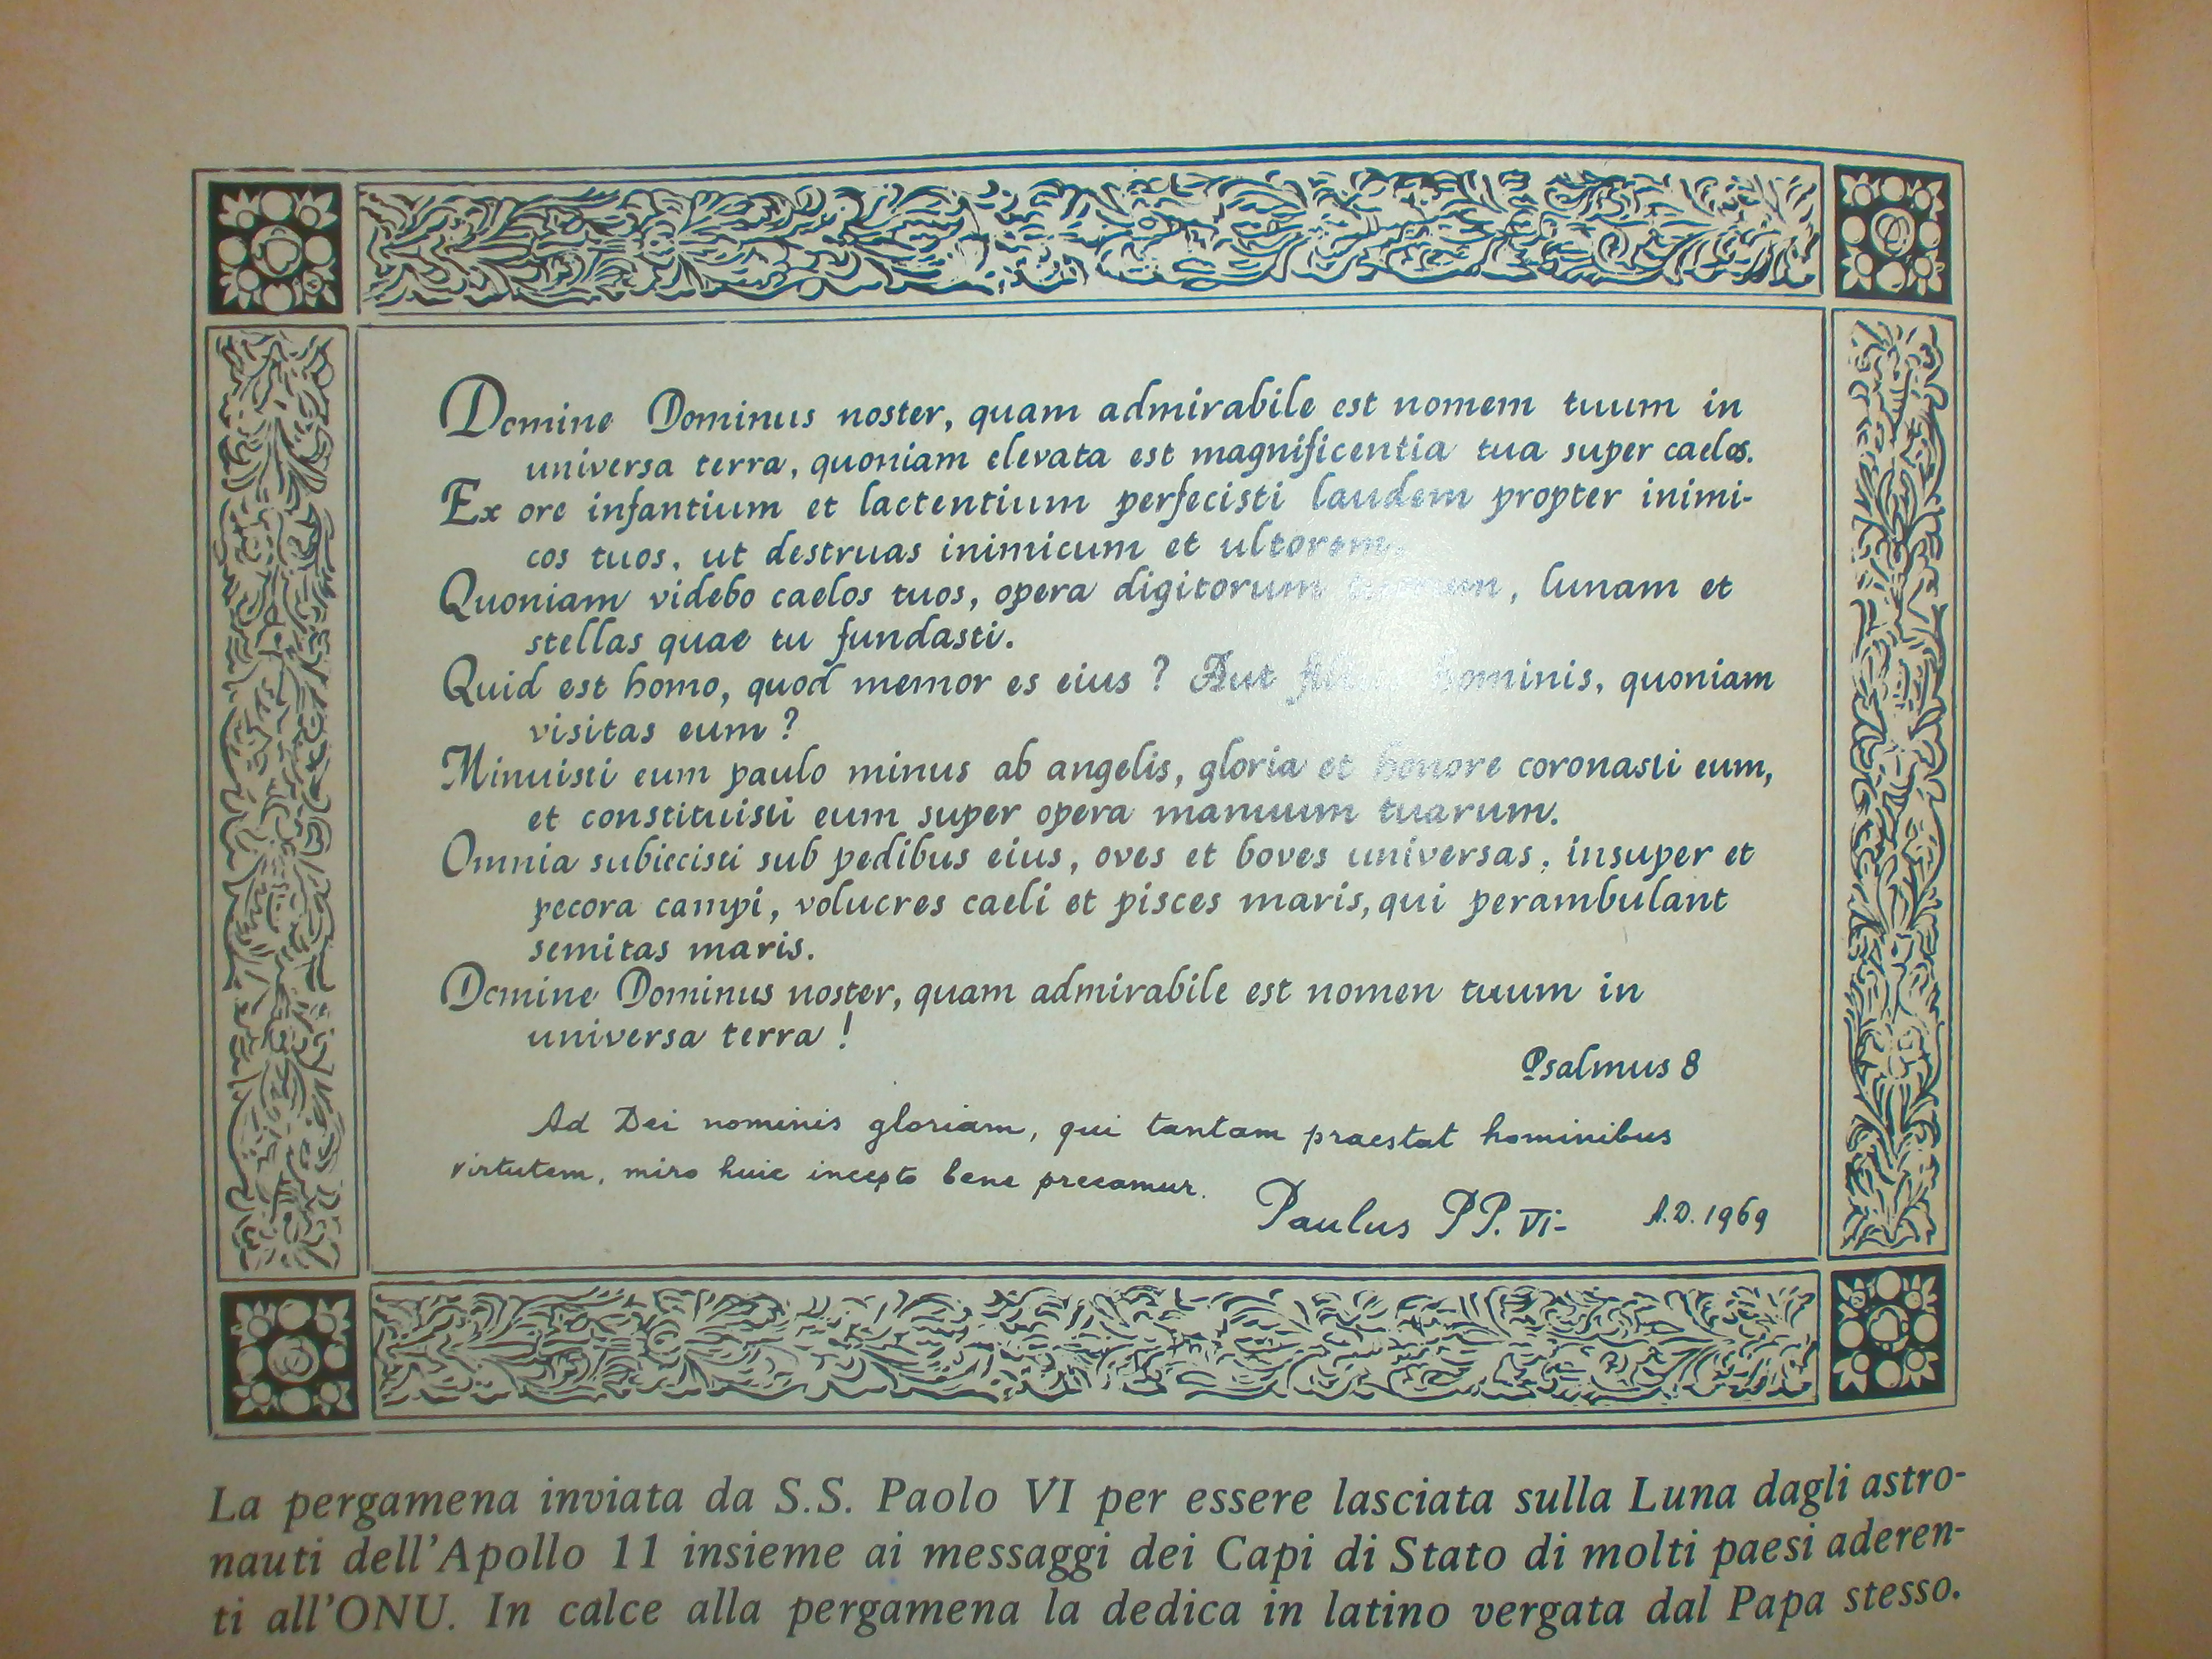 Domine Dominus noster, quam admirabile est nomem tuum in
universa terra, quoniam elevata est magnificentia tua super caelos.
Ex ore infantium et lactentium perfecisti laudem propter inimi-
cos tuos, ut destruas inimicum et ultorem.
Quoniam videbo caelos tuos, opera digitorum tuorum, lunam et
stellas quae tu fundasti.
Quid est homo, quod memor es eius? Aut filius hominis, quoniam
visitas eum?
Minuisti eum paulo minus ab angelis, gloria et honore coronasti eum,
et constituisti eum super opera manuum tuarum.
Omnia subiecisti sub pedibus eius, oves et boves universas, insuper et
pecora campi, volucres caeli et pisces maris, qui perambulant
semitas maris.
Domine Dominus noster, quam admirabile est nomen tuum in
universa terra!
Psalmus 8
Ad Dei nominis gloriam, qui tantam praestat hominibus
virtutem, miro huic incepto bene precamur.
Paulus PP. VI- A.D. 1969
La pergamena inviata da S.S. Paolo VI per essere lasciata sulla Luna dagli astro-
nauti dell'Apollo 11 insieme ai messaggi dei Capi di Stato di molti paesi aderen-
ti all'ONU. In calce alla pergamena la dedica in latino vergata dal Papa stesso.